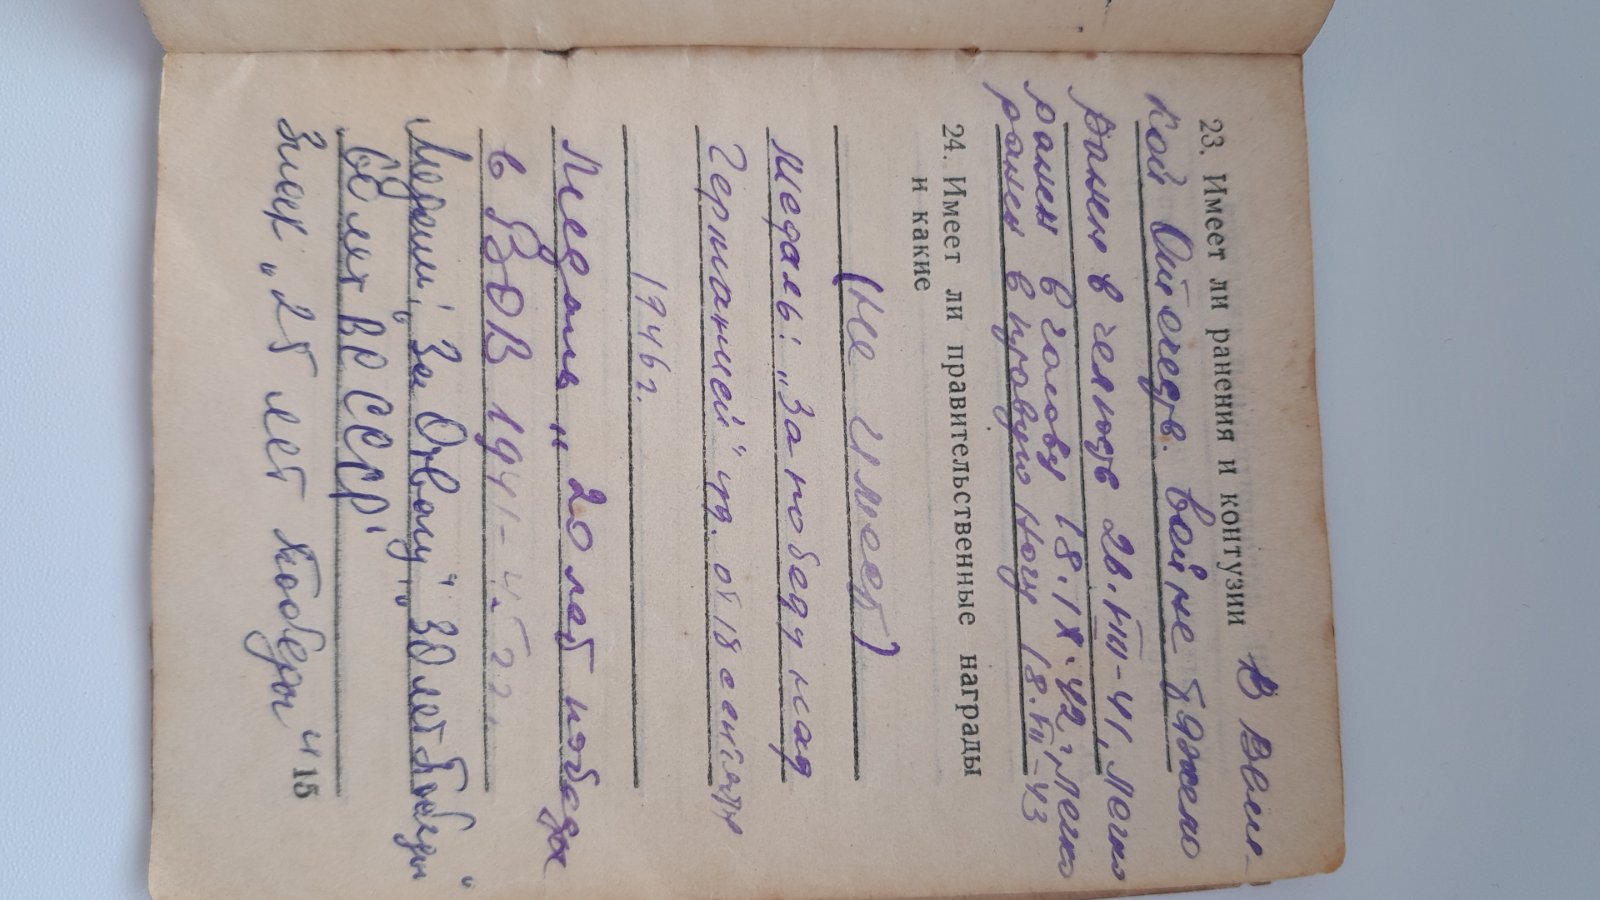 23. Имеет ли ранения и контузии В Вели-
кой Отечеств. войне тяжело
ранен в челюсть 26.VIII-41, легко
ранен в голову 18.IX.42г, легко
ранен в правую ногу 18.VII-43
24. Имеет ли правительственные награды
и какие
(не имеет)
Медаль: „За победу над
Германией" пр. от 18 сентября
1946г.
Медаль „20 лет победы
в ВОВ 1941-45гг.
Медали: „За Отвагу", „30 лет Победы"
„50 лет ВС СССР"
Знак „25 лет Победы"
15